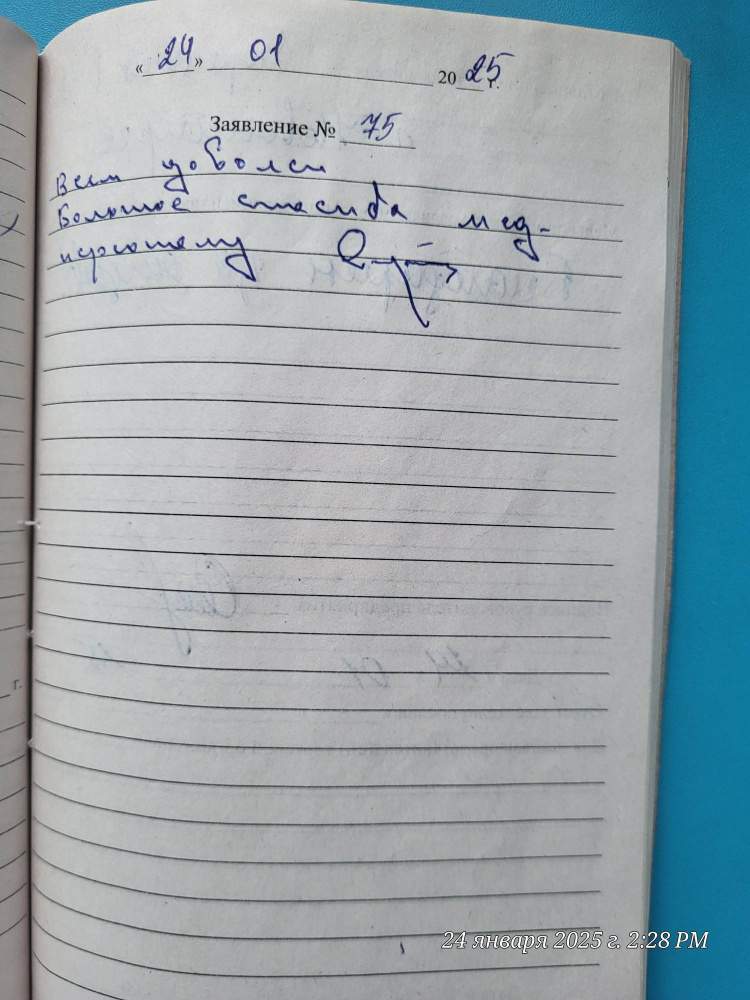 « 24 » 01 20 25 г.
Заявление № 75
Всем доволен
Большое спасиба мед-
персоналу
г.
24 января 2025 г. 2:28 PM